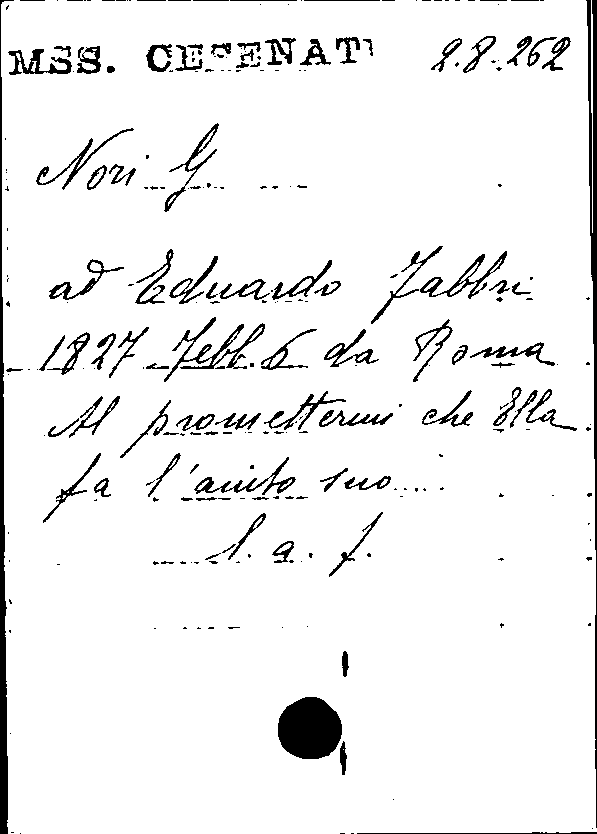 MSS. CESENATI 2.8.262
Nori G.
ad Eduardo Fabbri
1827 Febb. 6 da Roma
Al promettermi che Ella
fa l'aiuto suo...
l. a. f.